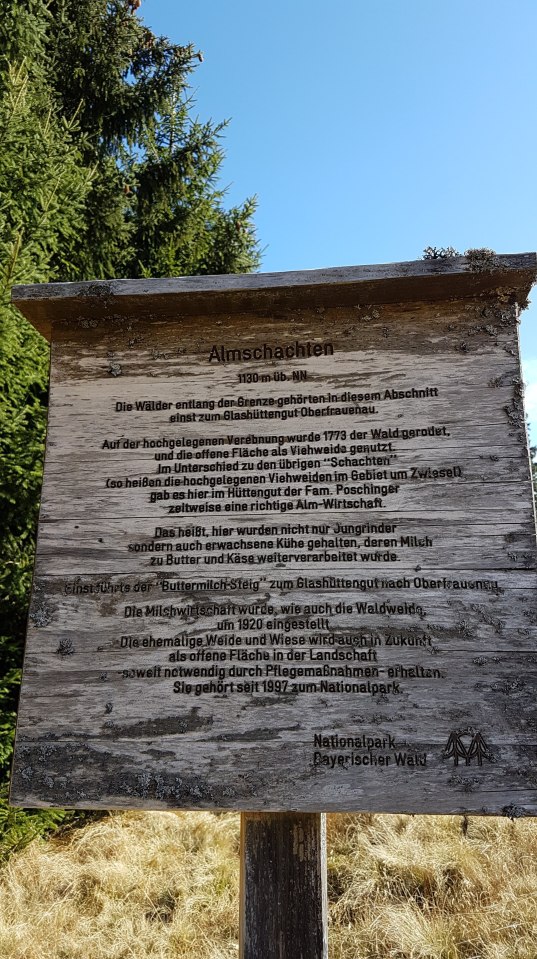 Almschachten
1130 m üb. NN
Die Wälder entlang der Grenze gehörten in diesem Abschnitt
einst zum Glashüttengut Oberfrauenau.
Auf der hochgelegenen Verebnung wurde 1773 der Wald gerodet,
und die offene Fläche als Viehweide genutzt.
Im Unterschied zu den übrigen "Schachten"
(so heißen die hochgelegenen Viehweiden im Gebiet um Zwiesel)
gab es hier im Hüttengut der Fam. Poschinger
zeitweise eine richtige Alm-Wirtschaft.
Das heißt, hier wurden nicht nur Jungrinder
sondern auch erwachsene Kühe gehalten, deren Milch
zu Butter und Käse weiterverarbeitet wurde.
Einst führte der "Buttermilch-Steig" zum Glashüttengut nach Oberfrauenau.
Die Milchwirtschaft wurde, wie auch die Waldweide,
um 1920 eingestellt.
Die ehemalige Weide und Wiese wird auch in Zukunft
als offene Fläche in der Landschaft
-soweit notwendig durch Pflegemaßnahmen- erhalten.
Sie gehört seit 1997 zum Nationalpark.
Nationalpark
Bayerischer Wald